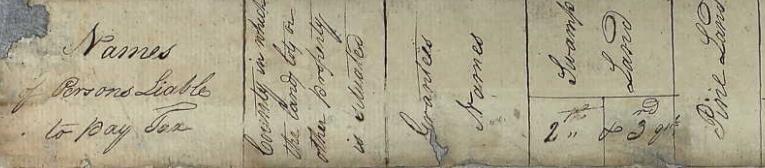 Names
of Persons Liable
to pay Tax
County in which
the land lot or
other property
is situated
Grantees
Names
Swamp
Land
2nd & 3rd qlt
Pine Land